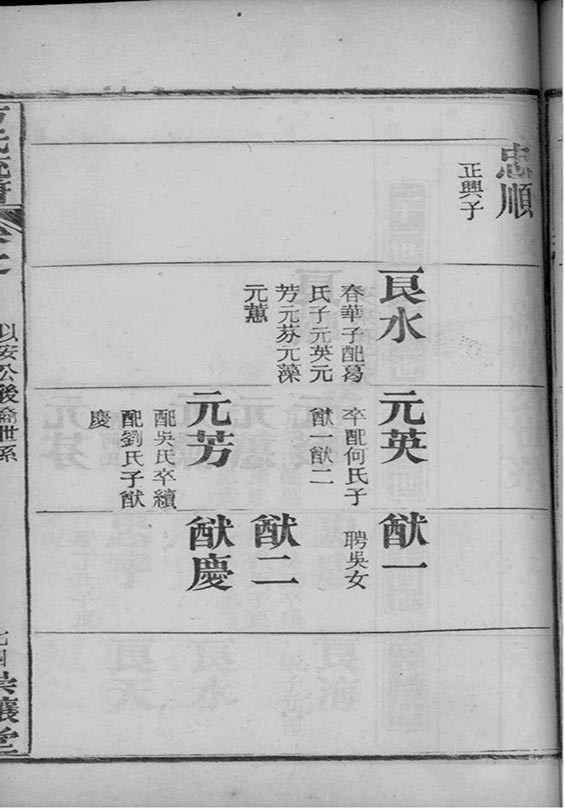 忠順
正興子
良水
春華子配葛
氏子元英元
芳元芬元藻
元蕙
元英
卒配何氏子
猷一猷二
元芳
配吳氏卒續
配劉氏子猷
慶
猷一
聘吳女
猷二
猷慶
以安公後裔世系